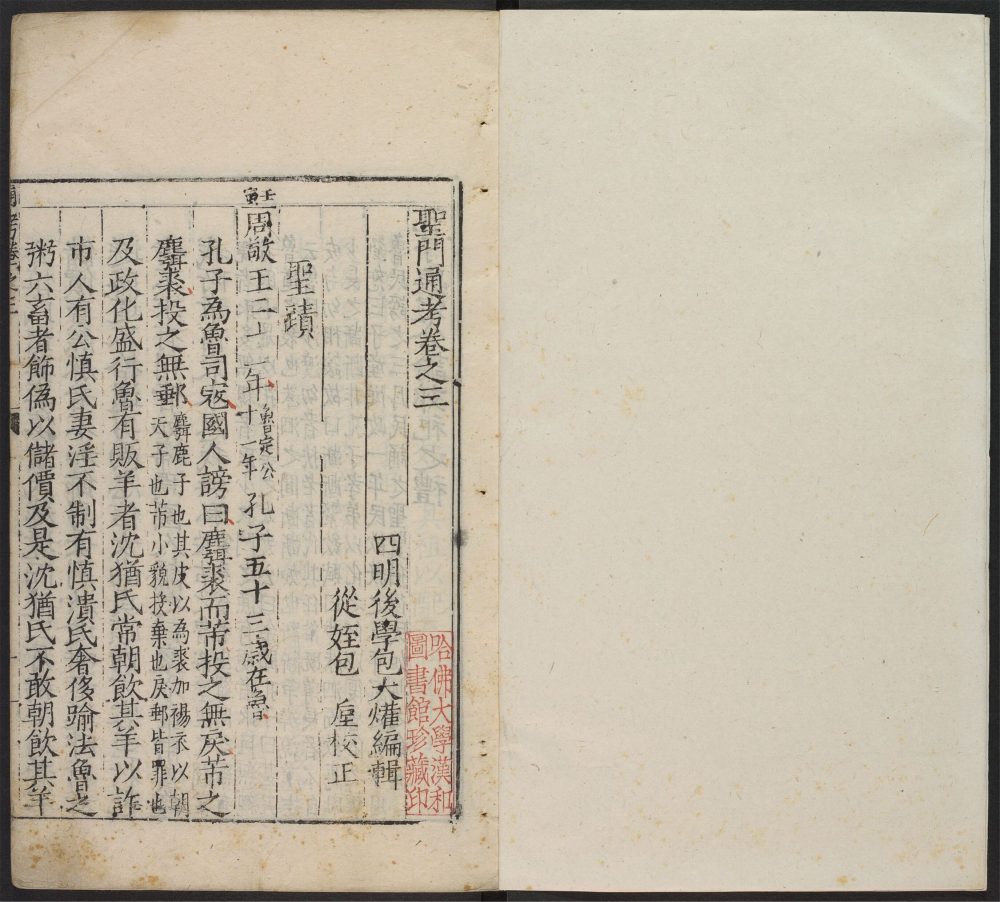 聖門通考卷之三
四明後學包大爟編輯
從姪包 垕校正
哈佛大學漢和
圖書館珍藏印
聖蹟
壬寅
周敬王二十一年魯定公十一年孔子五十三歲在魯
孔子為魯司寇國人謗曰麛裘而芾投之無戾芾之
麛裘投之無郵麛鹿子也其皮以為裘加裼衣以朝
天子也芾小貌投棄也戾郵皆罪也
及政化盛行魯有販羊者沈猶氏常朝飲其羊以詐
市人有公慎氏妻淫不制有慎潰氏奢侈踰法魯之
粥六畜者飾偽以儲價及是沈猶氏不敢朝飲其羊